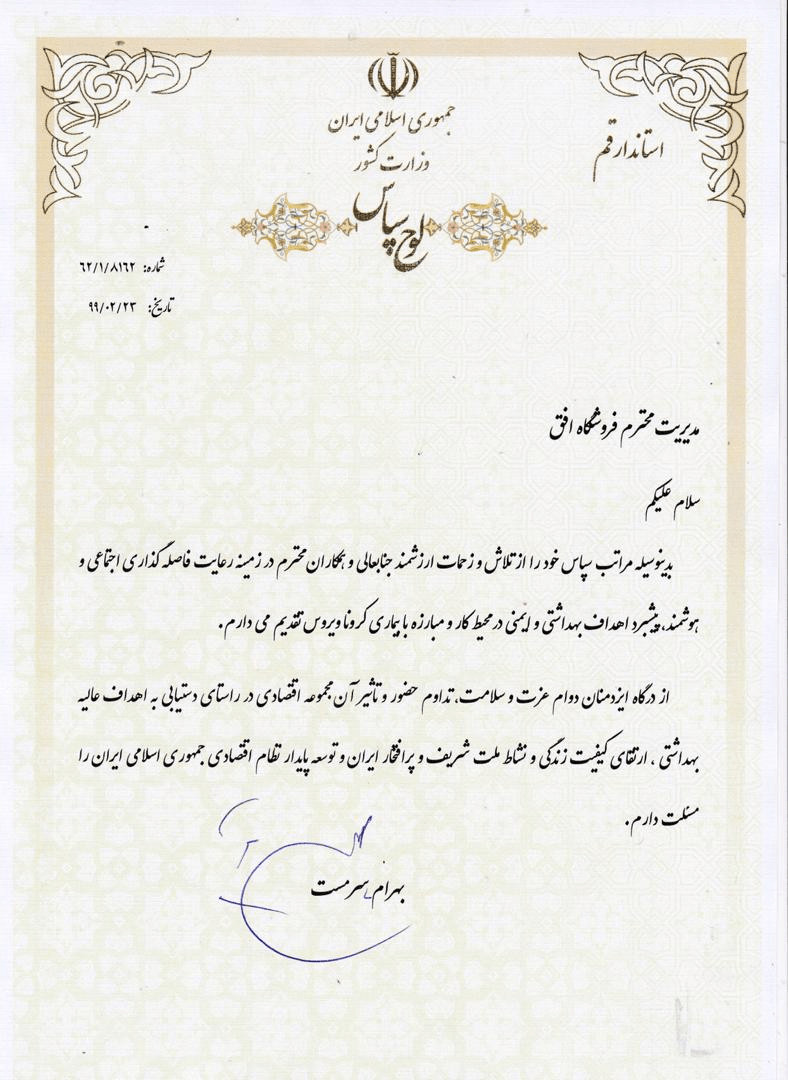 جمهوری اسلامی ایران
وزارت کشور
استاندار قم
لوح سپاس
شماره: ۶۲/۱/۸۱۶۲
تاریخ: ۹۹/۰۲/۲۳
مدیریت محترم فروشگاه افق
سلام علیکم
بدینوسیله مراتب سپاس خود را از تلاش و زحمات ارزشمند جنابعالی و همکاران محترم در زمینه رعایت فاصله گذاری اجتماعی و
هوشمند، پیشبرد اهداف بهداشتی و ایمنی در محیط کار و مبارزه با بیماری کرونا ویروس تقدیم می دارم.
از درگاه ایزدمنان دوام عزت و سلامت، تداوم حضور و تاثیر آن مجموعه اقتصادی در راستای دستیابی به اهداف عالیه
بهداشتی ، ارتقای کیفیت زندگی و نشاط ملت شریف و پرافتخار ایران و توسعه پایدار نظام اقتصادی جمهوری اسلامی ایران را
مسئلت دارم.
بهرام سرمست